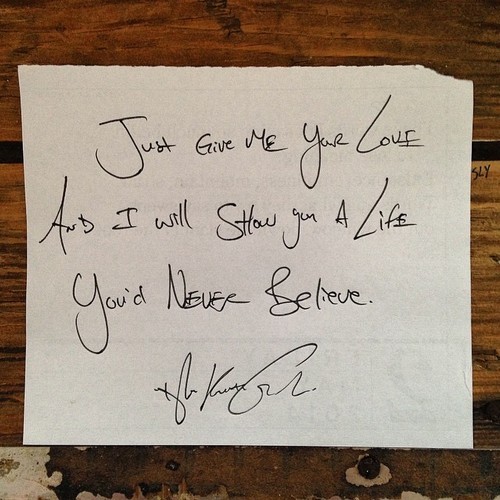 Just Give Me Your Love
And I will Show you A Life
You'd Never Believe.
SLY